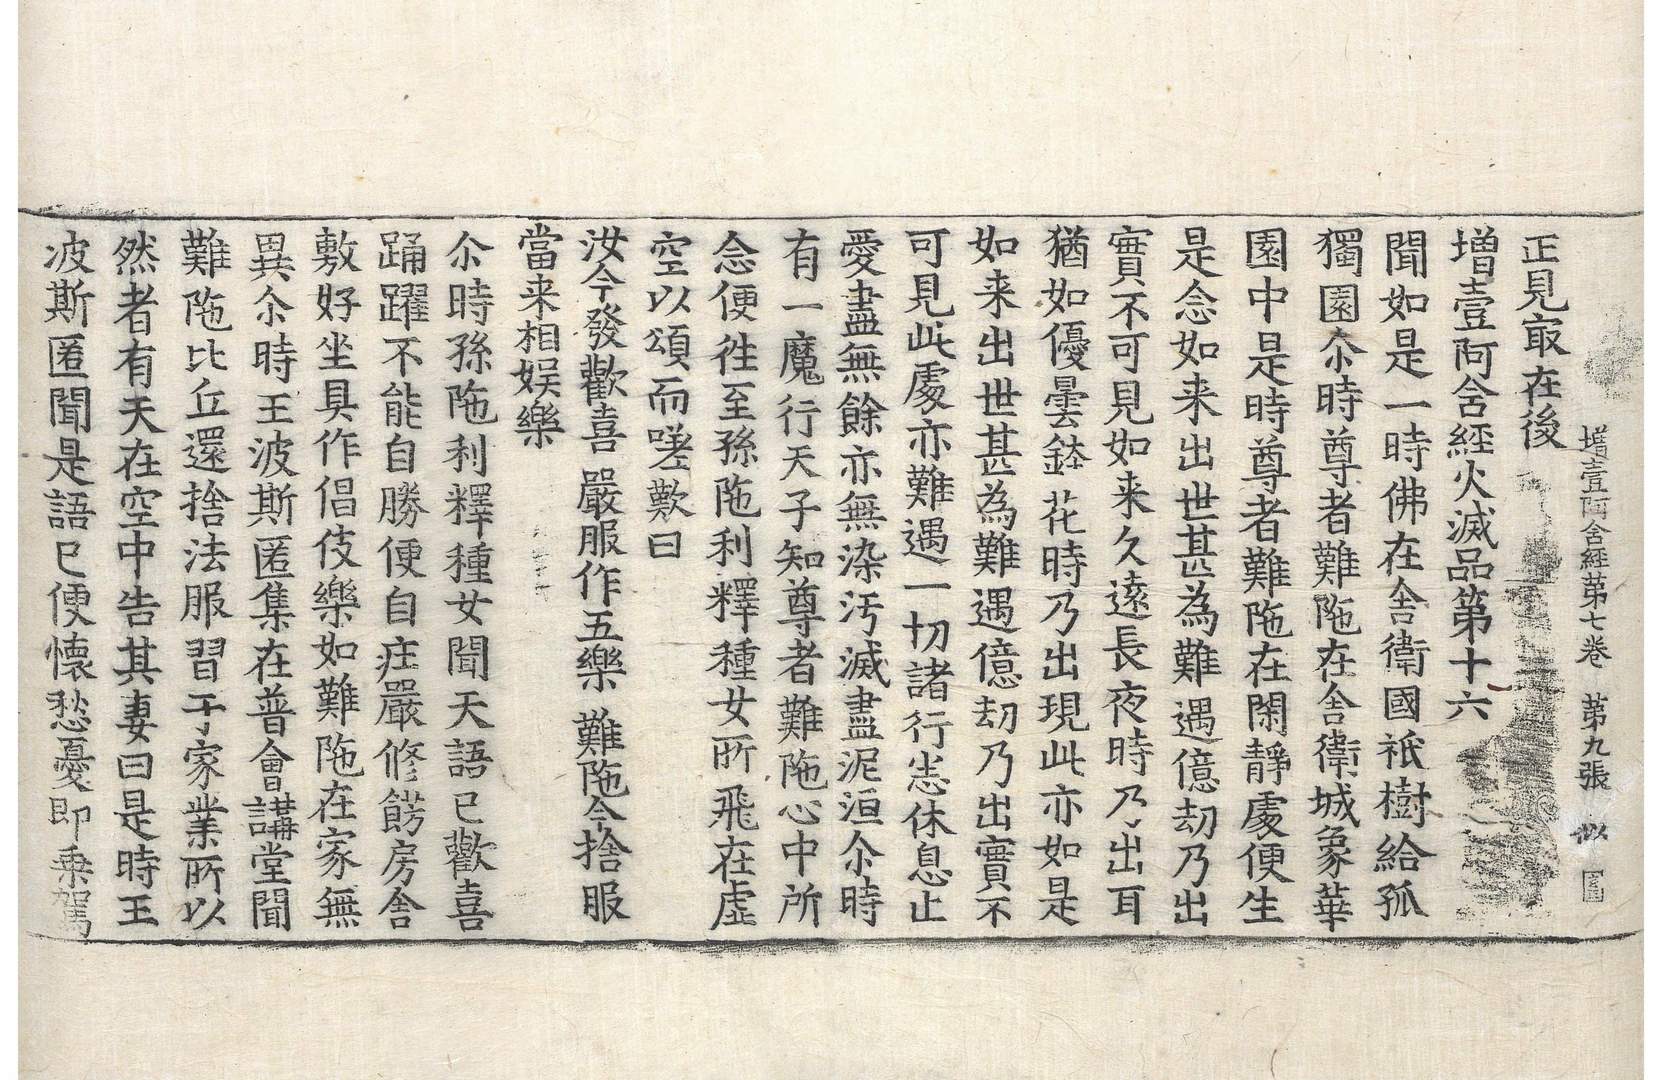 増壹阿含經第七卷 第九張 似
正見㝡在後
増壹阿含經火滅品第十六
聞如是一時佛在舍衛國祇樹給孤
獨園尒時尊者難陁在舍衛城象華
園中是時尊者難陁在閑靜處便生
是念如来出世甚為難遇億劫乃出
實不可見如来久遠長夜時乃出耳
猶如優曇鉢花時乃出現此亦如是
如来出世甚為難遇億劫乃出實不
可見此處亦難遇一切諸行悉休息止
愛盡無餘亦無染汚滅盡泥洹尒時
有一魔行天子知尊者難陁心中所
念便往至孫陁利釋種女所飛在虛
空以頌而嗟歎曰
汝今發歡喜 嚴服作五樂 難陁今捨服
當来相娛樂
尒時孫陁利釋種女聞天語已歡喜
踊躍不能自勝便自疘嚴修餝房舍
敷好坐具作倡伎樂如難陁在家無
異尒時王波斯匿集在普會講堂聞
難陁比丘還捨法服習于家業所以
然者有天在空中告其妻曰是時王
波斯匿聞是語已便懷愁憂即乗駕